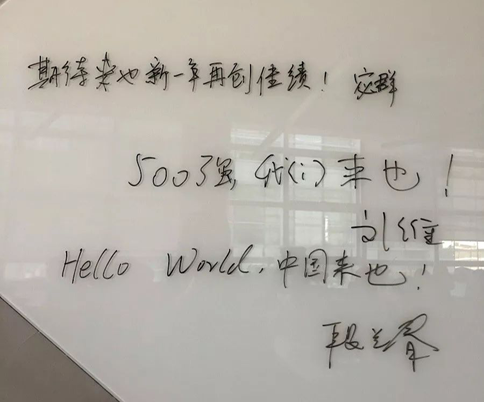 期待 新一年再创佳绩! 宓群
500强,我们来也!
Hello World,中国来也!
段兰春